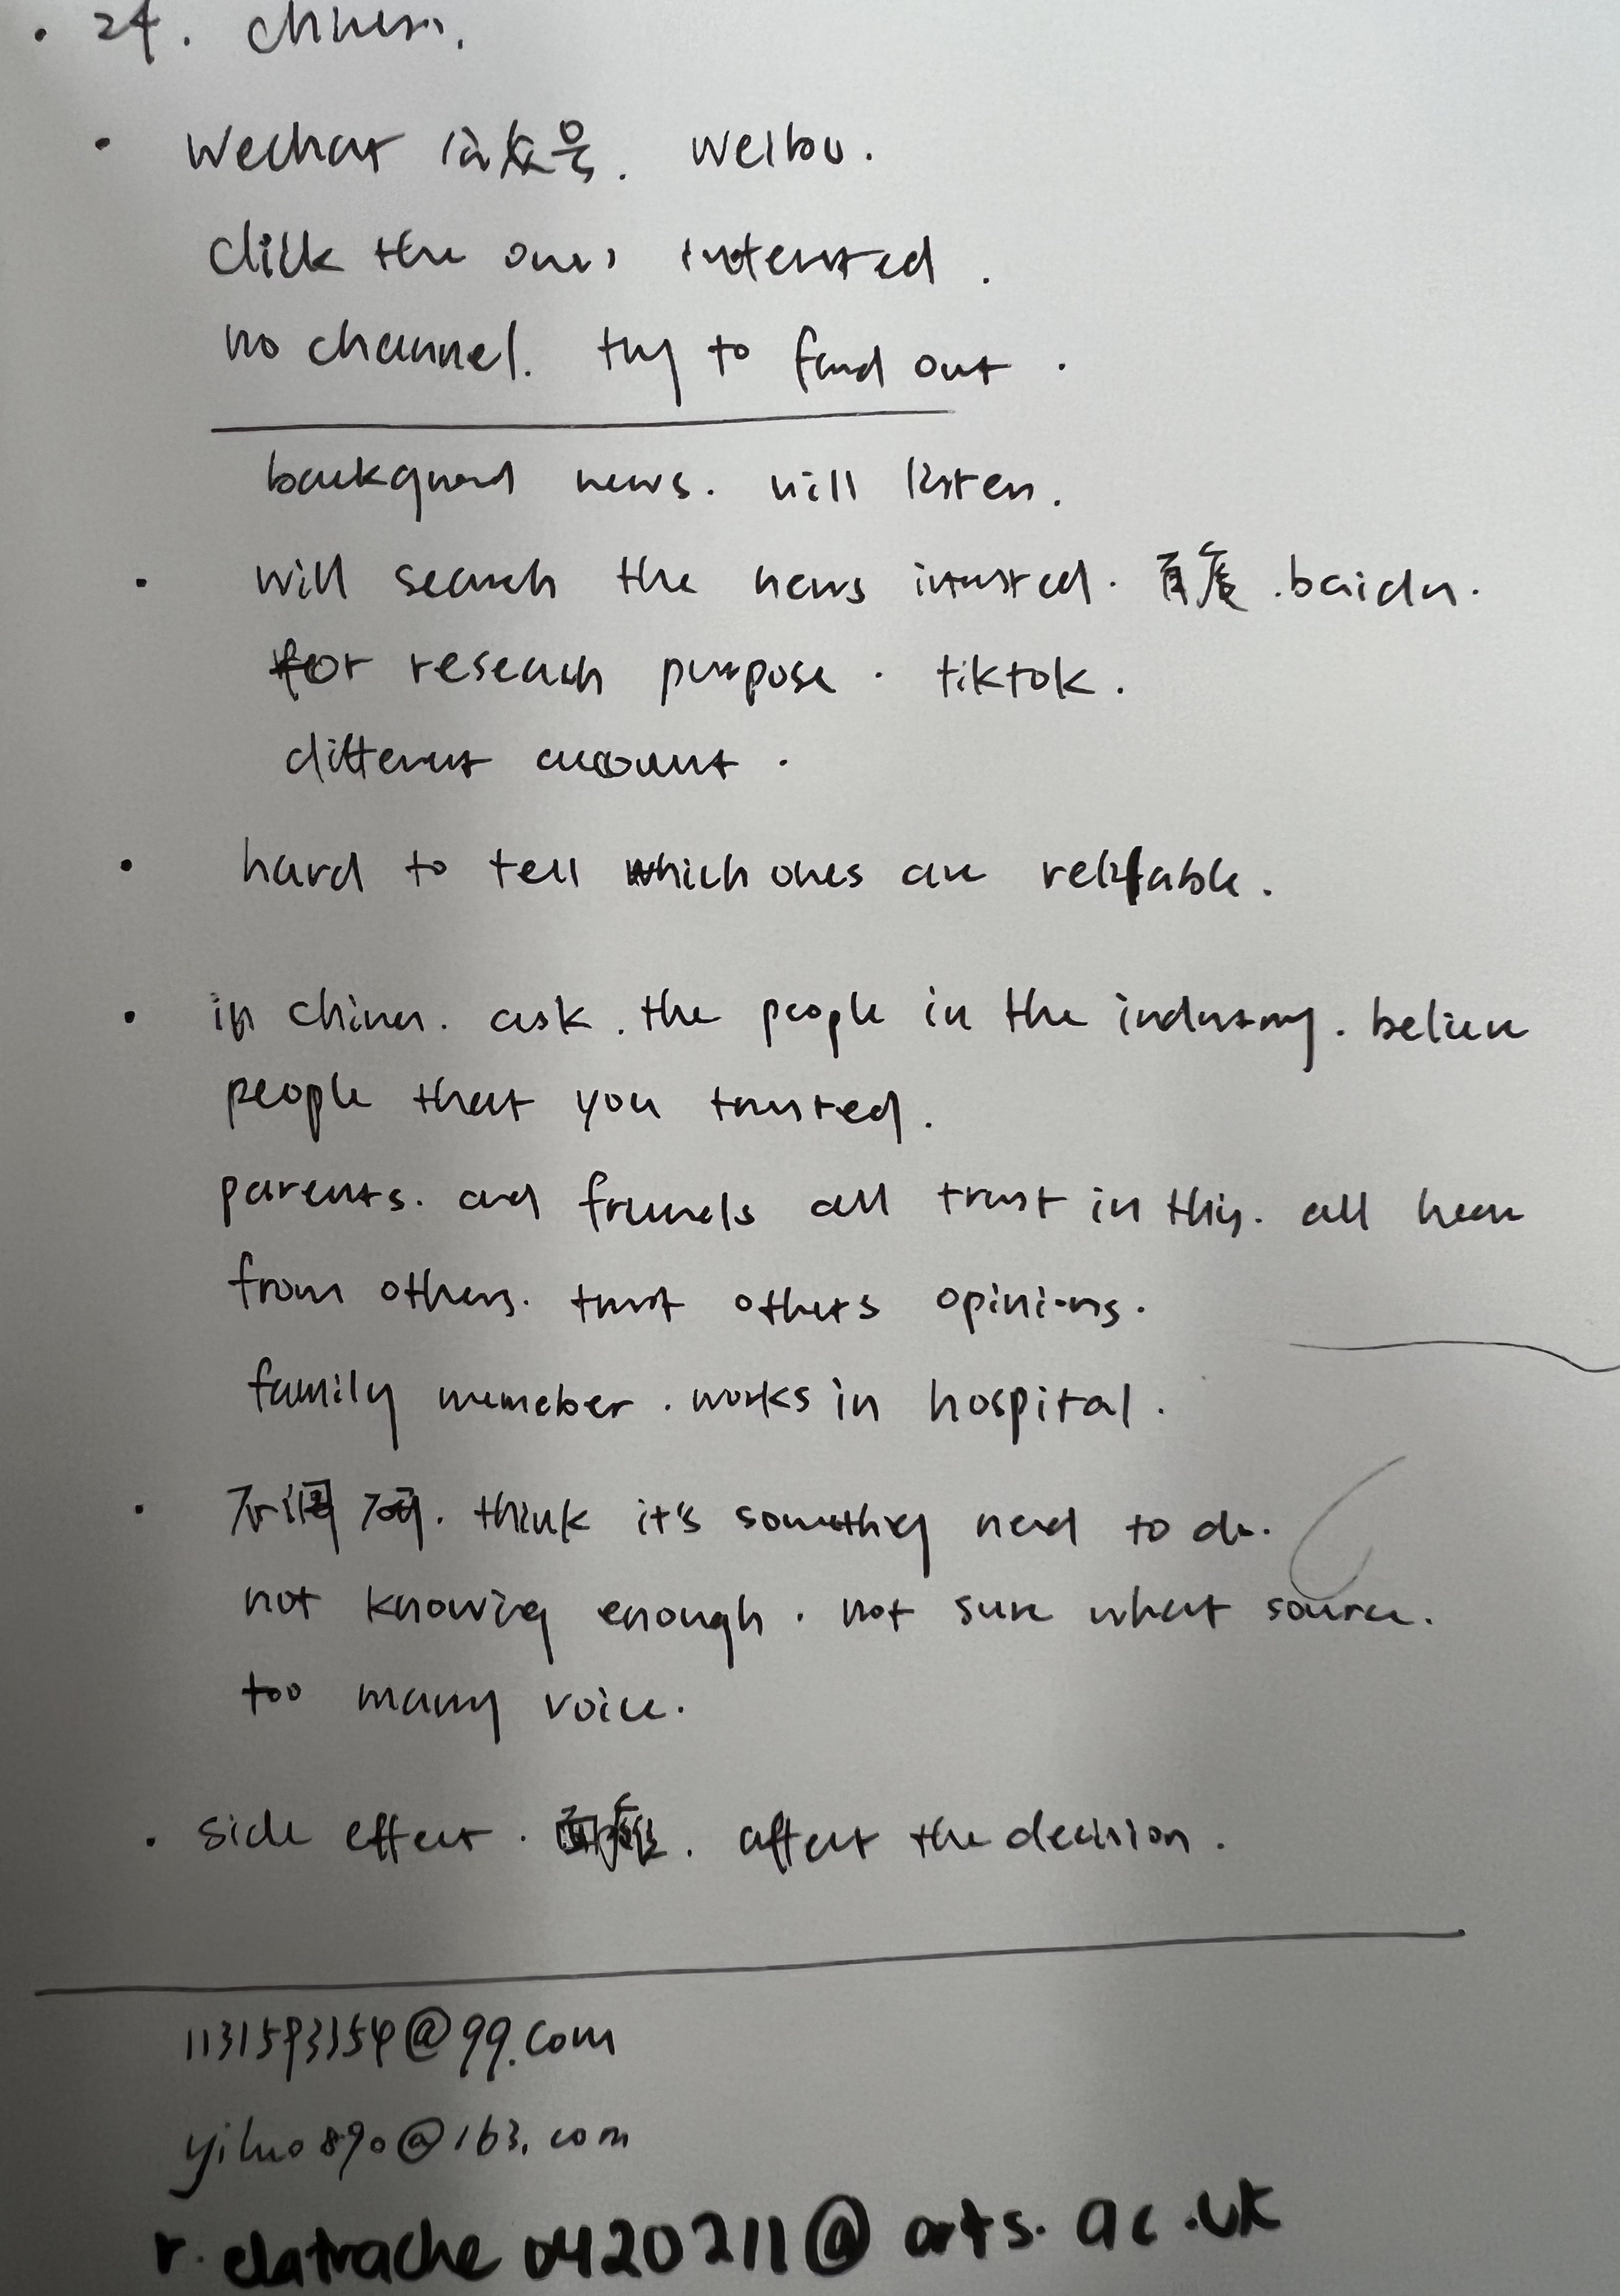 • 24. Chinese.
• Wechat 公众号. Weibo.
click the ones interested.
no channel. try to find out.
background news. will listen.
• will search the news interested. 百度. baidu.
for reseach purpose. tiktok.
different account.
• hard to tell which ones are reliable.
• in china. ask. the people in the industry. believe
people that you trusted.
parents. and friends all trust in this. all hear
from others. trust others opinions.
family memeber. works in hospital.
• think it's something need to do.
not knowing enough. not sure what source.
too many voice.
• side effect. affect the decision.
@qq.com
yiluo890@163.com
r.elatrache0420211@arts.ac.uk